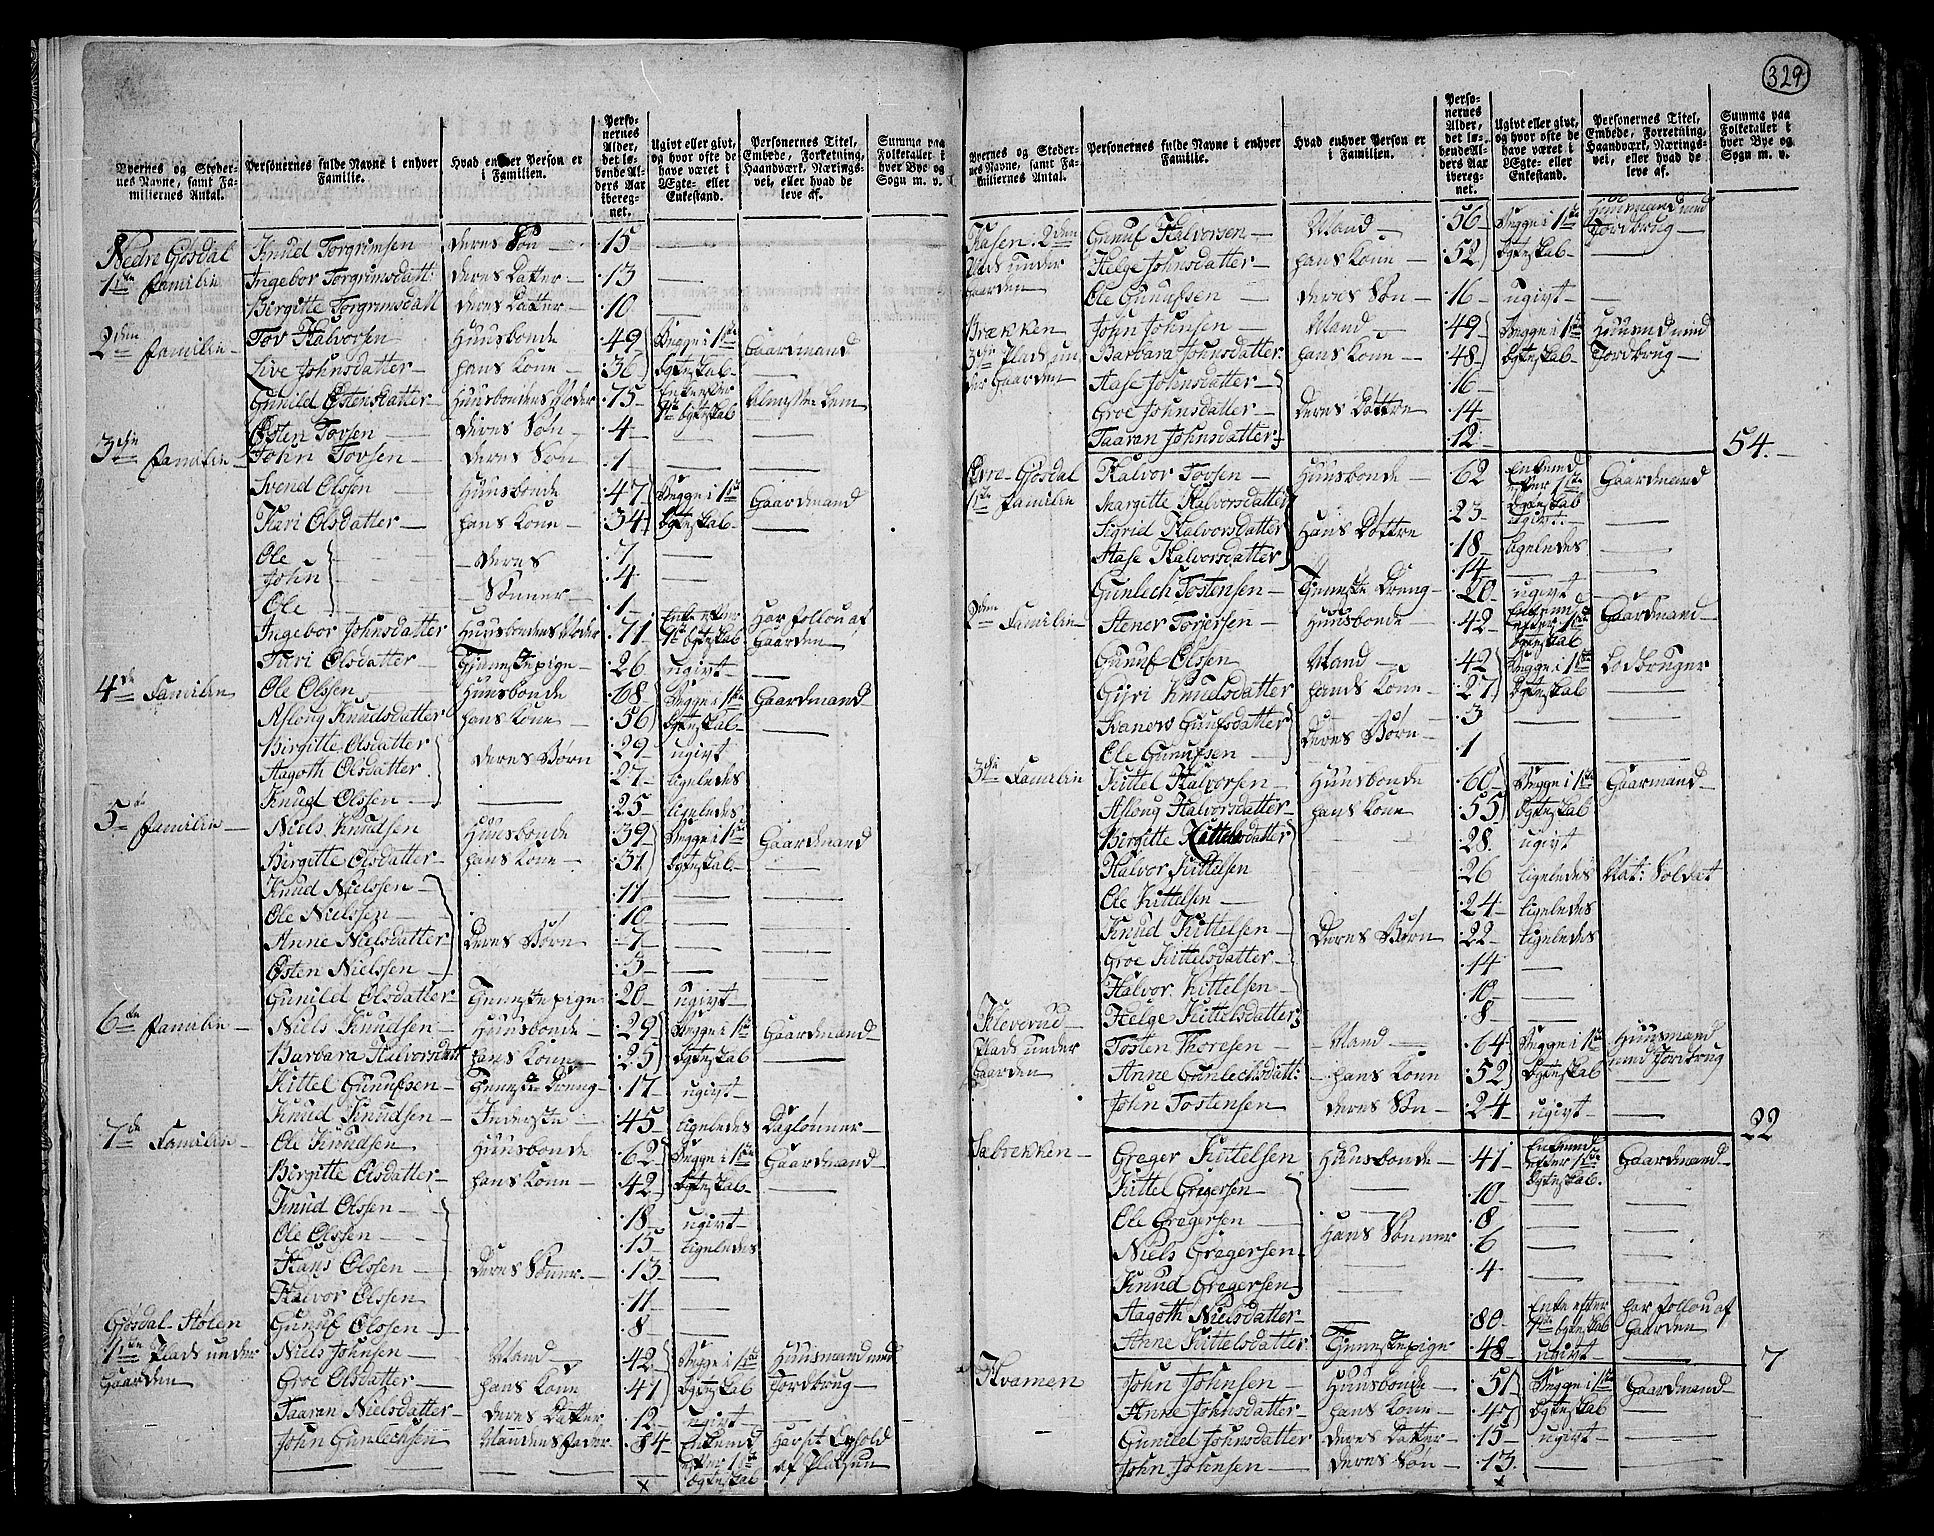 329
Byernes og Stedernes Navne, samt Familiernes Antal. | Personernes fulde Navne i enhver Familie. | Hvad enhver Person er i Familien. | Personernes Alder, det løbende Alders Aar iberegnet. | Ugivt eller givt, og hvor ofte de have været i Ægte- eller Enkestand. | Personernes Titel, Embede, Forretning, Haandværk, Næringsvei, eller hvad de leve af. | Summa paa Folketallet i hver Bye og Sogn m. v.
Nedre Gjøsdal | Knud Torgrimsen | deres Søn | 15
1ste Familie | Ingebor Torgrimsdatt: | deres Datter | 13
Birgitte Torgrimsdatt | deres Datter | 10
2den Familie | Tov Halvorsen | Huusbonde | 49 | Begge i 1ste | Gaardmand
Live Johnsdatter | hans Kone | 36 | Egteskab
Gunild Østensdatter | Huusbondens Moder | 75 | Enke efter 1ste Egteskab | Almisse Lem
Østen Tovsen | deres Søn | 4
3die Familie | John Tovsen | deres Søn | 1
Svend Olssen | Huusbonde | 47 | Begge i 1ste | Gaardmand
Kari Olsdatter | hans Kone | 34 | Egteskab
Ole | deres | 7
John | Sønner | 4
Ole | 1
Ingebor Johnsdatter | Huusbondens Moder | 71 | Enke efter 1te Egteskab | Har follou af Gaarden
Turi Olsdatter | Tjenestepige | 26 | ugivt
4de Familie | Ole Olssen | Huusbonde | 68 | Begge i 1ste | Gaardmand
Aslong Knudsdatter | hans Kone | 56 | Egteskab
Birgitte Olsdatter | deres Børn | 29 | ugivt
Aagoth Olsdatter | 27 | ligeledes
Knud Olssen | 25 | ligeledes
5te Familie | Niels Knudsen | Huusbonde | 39 | Begge i 1ste | Gaardmand
Birgitte Olsdatter | hans Kone | 31 | Egteskab
Knud Nielssen | 11
Ole Nielssen | 10
Anne Nielsdatter | deres Børn | 7
Østen Nielssen | 3
Gunild Olsdatter | Tjenestepige | 20 | ugivt
6te Familie | Niels Knudsen | Huusbonde | 29 | Begge i 1ste | Gaardmand
Barbara Halvorsdatt | hans Kone | 25 | Egteskab
Kittel Gunufsen | Tjeneste Dreng | 17 | ugivt
Knud Knudsen | Inderste | 45 | ligeledes | Daglønner
7de Familie | Ole Knudsen | Huusbonde | 62 | Begge i 1ste | Gaardmand
Birgitte Olsdatter | hans Kone | 42 | Egteskab
Knud Olssen | 18 | ugivt
Ole Olssen | 15 | ligeledes
Hans Olssen | deres Sønner | 13
Halvor Olssen | 11
Gjøsdal-Støten | Gunuf Olssen | 8
1ste Plads under | Niels Johnsen | Mand | 42 | Begge i 1ste | Huusmand med
Gaarden | Groe Olsdatter | hans Kone | 41 | Egteskab | Jordbrug
Taaran Nielsdatter | deres Datter | 12 | ugivt
John Gunlechsen | Mandens Fader | 84 | Enkemd efter 1ste Egteskab | Har sit Ophold af Pladsen
x
Byernes og Stedernes Navne, samt Familiernes Antal. | Personernes fulde Navne i enhver Familie. | Hvad enhver Person er i Familien. | Personernes Alder, det løbende Alders Aar iberegnet. | Ugivt eller givt, og hvor ofte de have været i Ægte- eller Enkestand. | Personernes Titel, Embede, Forretning, Haandværk, Næringsvei, eller hvad de leve af. | Summa paa Folketallet i hver Bye og Sogn m. v.
Kasen 2den | Gunuf Halvorsen | Mand | 56 | Begge i 1ste | Huusmand med Jordbrug
Plads under | Helge Johnsdatter | hans Kone | 52 | Egteskab
Gaarden | Ole Gunufsen | deres Søn | 16 | ugivt
Brækken | John Johnsen | Mand | 49 | Begge i 1ste | Huusmd med
3die Plads un | Barbara Johnsdatter | hans Kone | 48 | Egteskab | Jordbrug
der Gaarden | Aase Johnsdatter | 16
Groe Johnsdatter | deres Døttre | 14
Taaran Johnsdatter | 12 | 54.
Øvre-Gjøsdal | Halvor Tovsen | Huusbonde | 62 | Enkemd efter 1ste Egteskab | Gaardmand
1ste Familie | Margitte Halvorsdatter | 23 | ugivt
Sigrid Halvorsdatter | hans Døttre | 18 | ligeledes
Aase Halvorsdatter | 14
Gunlech Tostensen | Tjeneste Dreng | 20 | ugivt
2den Familie | Stener Torjersen | Huusbonde | 42 | Enkemd efter 1ste Egteskab | Gaardmand
Gunuf Olssen | Mand | 42 | Begge i 1ste | Lodbruger
Gyri Knudsdatter | hands Kone | 27 | Egteskab
Gunufsdatter | deres Børn | 3
Ole Gunufsen | 1
3die Familie | Kittel Halvorsen | Huusbonde | 60 | Begge i 1ste | Gaarmand
Aslong Halvorsdatter | hans Kone | 55 | Egteskab
Birgitte Kittelsdatter | 28 | ugivt
Halvor Kittelsen | 26 | ligeledes | Nat: Soldat
Ole Kittelsen | 24 | ligeledes
Knud Kittelsen | deres Børn | 22 | ligeledes
Groe Kittelsdatter | 14
Halvor Kittelsen | 10
Kleverud | Helge Kittelsdatter | 8
Plads under | Tosten Thoresen | Mand | 64 | Begge i 1ste | Huusmand med Jordbrug
Gaarden | Anne Gunlechsdatt: | hans Kone | 52 | Egteskab
John Tostensen | deres Søn | 24 | ugivt | 22
Salbrekken | Greger Kittelsen | Huusbonde | 41 | Enkemd efter 1ste Egteskab. | Gaardmand
Kittel Gregersen | 10
Ole Gregersen | hans Sønner | 8
Niels Gregersen | 6
Knud Gregersen | 4
Aagoth Nielsdatter | 80 | Enke efter 1ste Egteskab | har follou af Gaarden
Anne Kittelsdatter | Tjenestepige | 48 | ugivt | 7
Kvamen | John Johnsen | Huusbonde | 51 | Begge i 1ste | Gaardmand
Anne Johnsdatter | hans Kone | 47 | Egteskab
Gunild Johnsdatter | deres Datter | 15 | ugivt
John Johnsen | deres Søn | 13
x